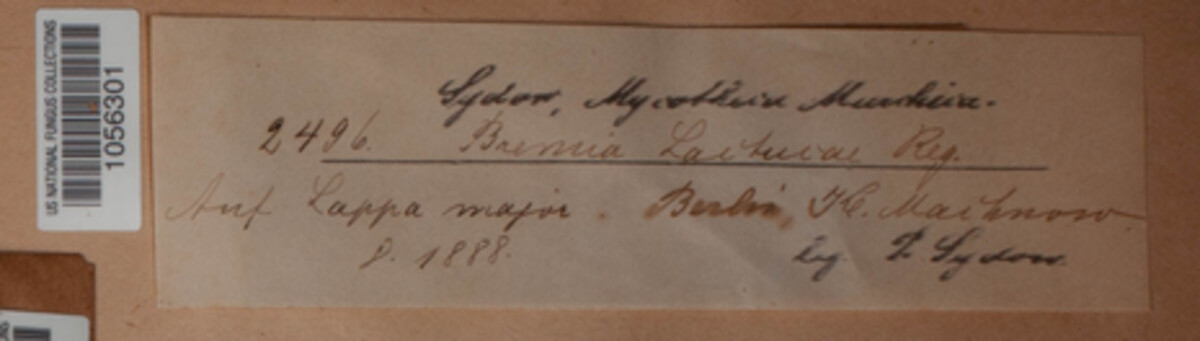 US NATIONAL FUNGUS COLLECTIONS
1056301
Sydow, Mycotheca Marchica.
2496. Bremia Lactucae Reg.
Auf Lappa major. Berlin, Kl. Machnow
8. 1888. leg. P. Sydow.